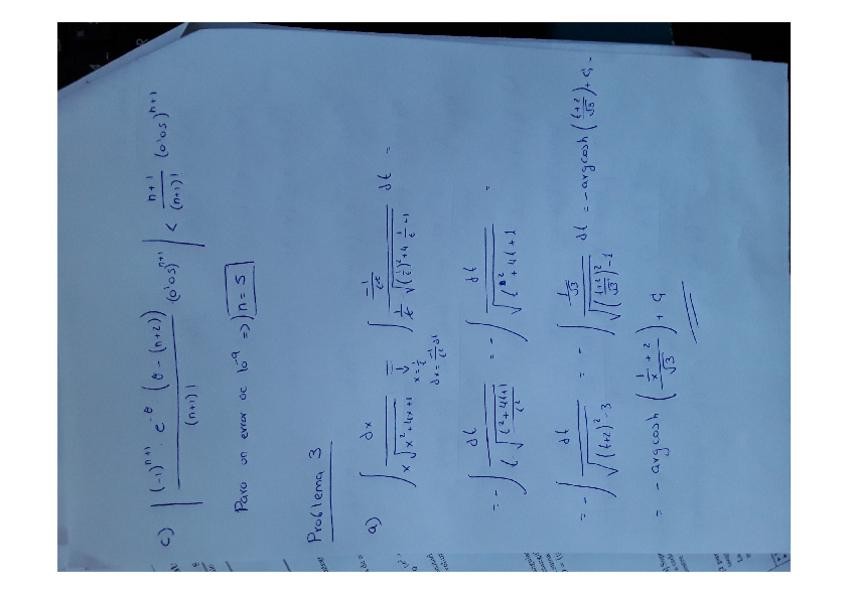 c) | (-1)^{n+1} · e^{-θ} (θ - (n+2)) / (n+1)! (0'05)^{n+1} | < n+1 / (n+1)! (0'05)^{n+1}
Para un error de 10^{-9} => n = 5
Problema 3
a) ∫ dx / x√(x²+4x+1) = ∫ (-1/t²) / (1/t · √((1/t)²+4 1/t -1)) dt =
x = 1/t
dx = -1/t² dt
= - ∫ dt / (t · √((t²+4t+1)/t²)) = - ∫ dt / √(t²+4t+1) =
= - ∫ dt / √((t+2)²-3) = - ∫ (1/√3) / √(((t+2)/√3)²-1) dt = - argcosh ((t+2)/√3) + C₁ =
= - argcosh ((1/x + 2)/√3) + C₁